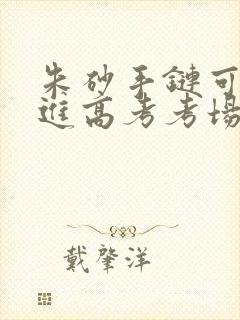 朱砂手鏈可
進高考考場
戴肇洋